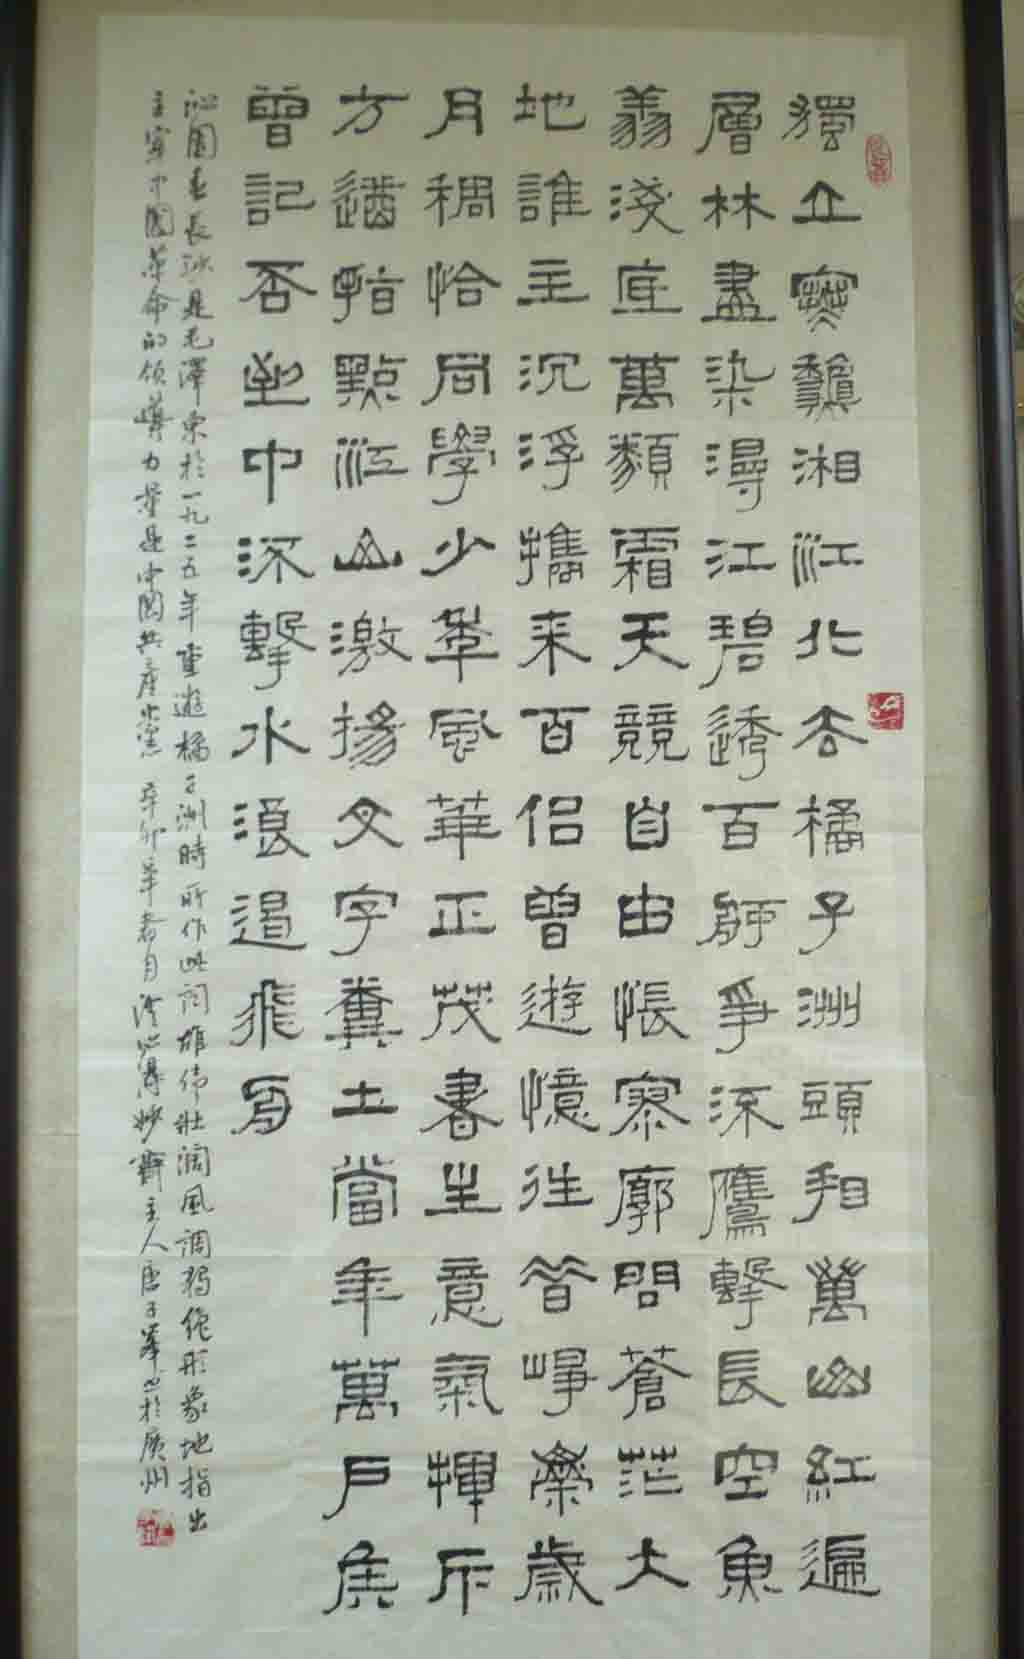 獨立寒龝湘江北去橘子洲頭看萬山紅遍
層林盡染漫江碧透百舸爭流鷹擊長空魚
翔淺底萬類霜天競自由悵寥廓問蒼茫大
地誰主沉浮攜來百侶曾遊憶往昔崢嶸歲
月稠恰同學少秊風華正茂書生意氣揮斥
方遒指點江山激揚文字糞土當年萬戶侯
曾記否到中流擊水浪遏飛舟
沁園春長沙是毛澤東於一九二五年重遊橘子洲時所作此詞雄偉壯濶風調獨絕形象地指出
主宰中國革命的領導力量是中國共產黨 辛卯年春月 心得妙齋主人唐子峯 於廣州